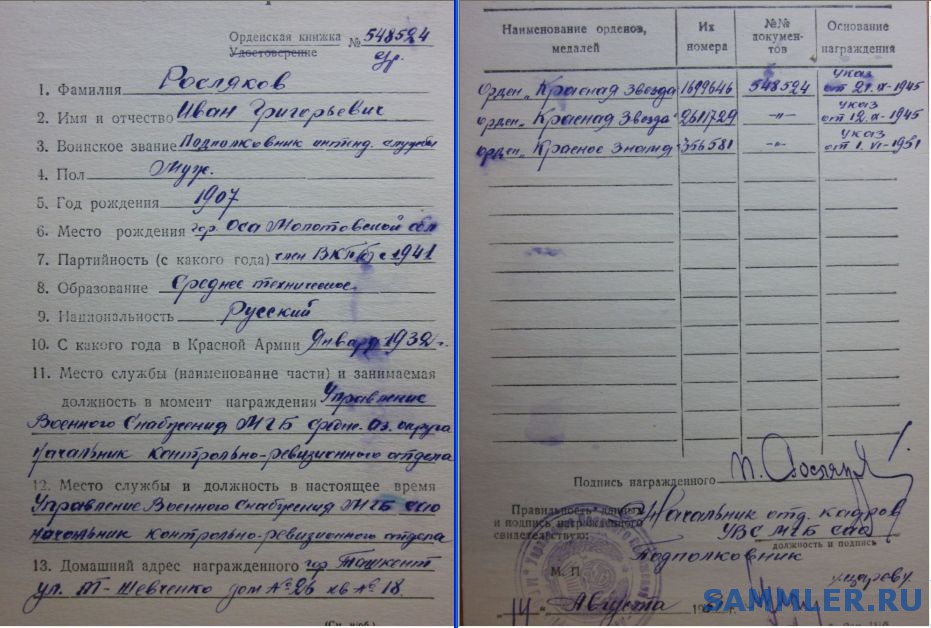 Орденская книжка №548524
Удостоверение
1. Фамилия Росляков
2. Имя и отчество Иван Григорьевич
3. Воинское звание Подполковник интенд. службы
4. Пол Муж.
5. Год рождения 1907
6. Место рождения гор. Оса Молотовской обл
7. Партийность (с какого года) член ВКП(б) с 1941
8. Образование Среднее техническое
9. Национальность Русский
10. С какого года в Красной Армии Январь 1932 г.
11. Место службы (наименование части) и занимаемая
должность в момент награждения Управление
Военного Снабжения МГБ средне-аз. округа
Начальник контрольно-ревизионного отдела
12. Место службы и должность в настоящее время
Управление Военного Снабжения МГБ САО
начальник контрольно-ревизионного отдела
13. Домашний адрес награжденного гор. Ташкент
ул. Т-Шевченко дом №26 кв №18
Наименование орденов, медалей
Их номера
№№ докумен-
тов
Основание награждения
Орден „Красная Звезда 1699646 548524 Указ от 21.IX-1945
орден „Красная Звезда" 2611729 -"- указ от 12.X-1945
орден „Красное Знамя" 356581 -"- указ от 1.VI-1951
Подпись награжденного
Правильность данных
и подпись награжденного
свидетельствую:
Начальник отд. кадров
УВС МГБ САО
должность и подпись
Подполковник
М. П.
„14" Августа
SAMMLER.RU